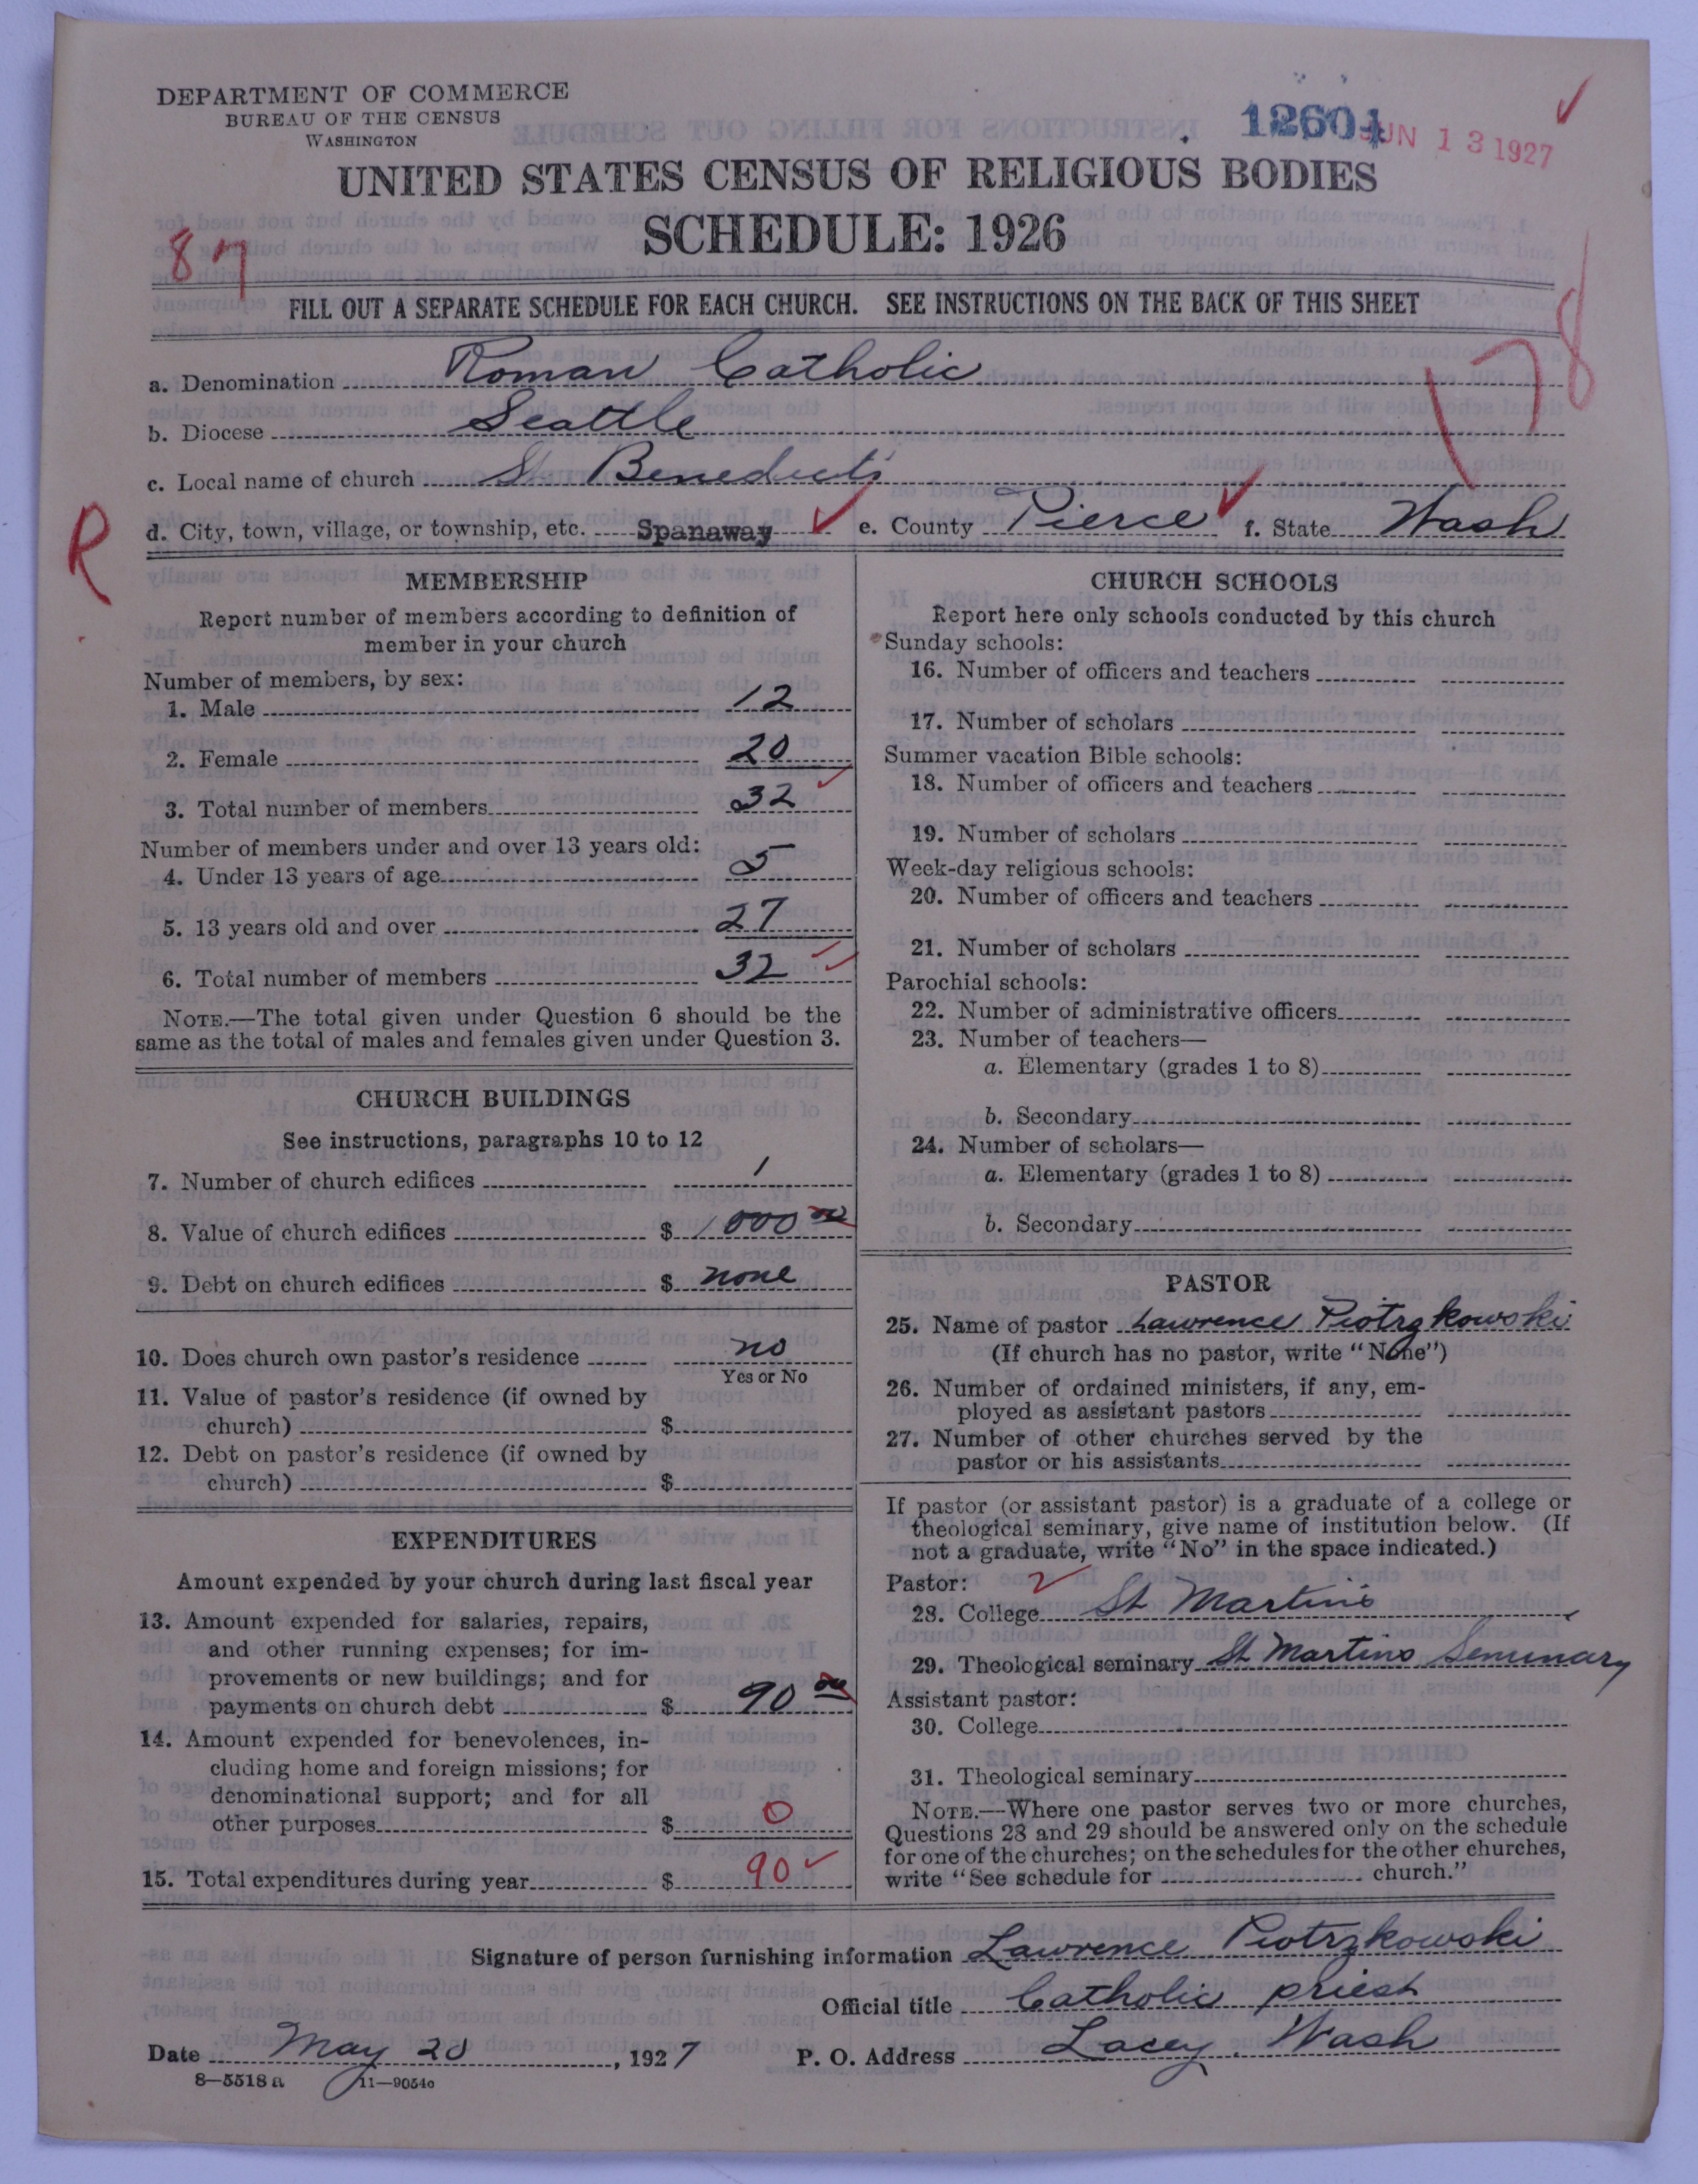 DEPARTMENT OF COMMERCE
BUREAU OF THE CENSUS
WASHINGTON
12604
JUN 13 1927
UNITED STATES CENSUS OF RELIGIOUS BODIES
SCHEDULE: 1926
87
178
FILL OUT A SEPARATE SCHEDULE FOR EACH CHURCH. SEE INSTRUCTIONS ON THE BACK OF THIS SHEET
a. Denomination Roman Catholic
b. Diocese Seattle
c. Local name of church St Benedict's
R
d. City, town, village, or township, etc. Spanaway e. County Pierce f. State Wash
MEMBERSHIP
Report number of members according to definition of
member in your church
Number of members, by sex:
1. Male 12
2. Female 20
3. Total number of members 32
Number of members under and over 13 years old:
4. Under 13 years of age 5
5. 13 years old and over 27
6. Total number of members 32
NOTE.—The total given under Question 6 should be the
same as the total of males and females given under Question 3.
CHURCH BUILDINGS
See instructions, paragraphs 10 to 12
7. Number of church edifices 1
8. Value of church edifices $ 1000 00
9. Debt on church edifices $ none
10. Does church own pastor's residence no
Yes or No
11. Value of pastor's residence (if owned by
church) $
12. Debt on pastor's residence (if owned by
church) $
EXPENDITURES
Amount expended by your church during last fiscal year
13. Amount expended for salaries, repairs,
and other running expenses; for im-
provements or new buildings; and for
payments on church debt $ 90 00
14. Amount expended for benevolences, in-
cluding home and foreign missions; for
denominational support; and for all
other purposes $ 0
15. Total expenditures during year $ 90
CHURCH SCHOOLS
Report here only schools conducted by this church
Sunday schools:
16. Number of officers and teachers
17. Number of scholars
Summer vacation Bible schools:
18. Number of officers and teachers
19. Number of scholars
Week-day religious schools:
20. Number of officers and teachers
21. Number of scholars
Parochial schools:
22. Number of administrative officers
23. Number of teachers—
a. Elementary (grades 1 to 8)
b. Secondary
24. Number of scholars—
a. Elementary (grades 1 to 8)
b. Secondary
PASTOR
25. Name of pastor Lawrence Piotrzkowski
(If church has no pastor, write "None")
26. Number of ordained ministers, if any, em-
ployed as assistant pastors
27. Number of other churches served by the
pastor or his assistants
If pastor (or assistant pastor) is a graduate of a college or
theological seminary, give name of institution below. (If
not a graduate, write "No" in the space indicated.)
Pastor: 2
28. College St Martins
29. Theological seminary St Martins Seminary
Assistant pastor:
30. College
31. Theological seminary
NOTE.—Where one pastor serves two or more churches,
Questions 28 and 29 should be answered only on the schedule
for one of the churches; on the schedules for the other churches,
write "See schedule for church."
Signature of person furnishing information Lawrence Piotrzkowski
Official title Catholic priest
Date May 20, 1927 P. O. Address Lacey, Wash
8—5518 a 11—9054c